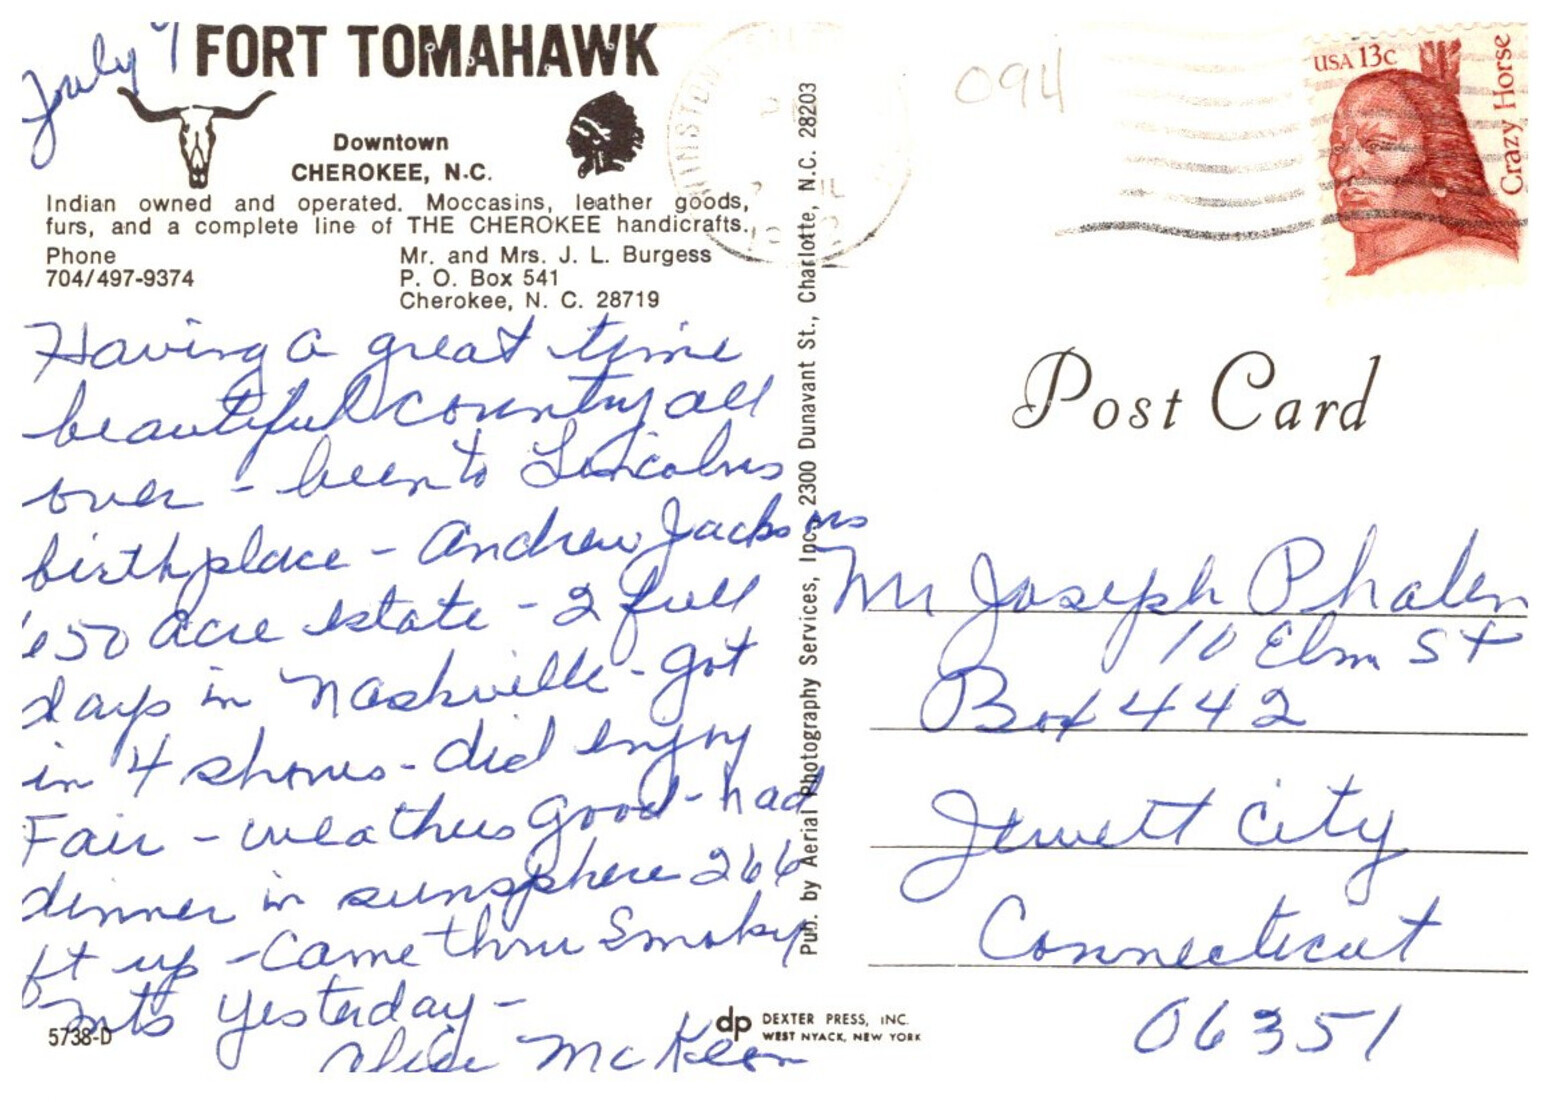 July 9
FORT TOMAHAWK
Downtown
CHEROKEE, N.C.
Indian owned and operated. Moccasins, leather goods,
furs, and a complete line of THE CHEROKEE handicrafts.
Phone
704/497-9374
Mr. and Mrs. J. L. Burgess
P. O. Box 541
Cherokee, N. C. 28719
Having a great time
beautiful country all
over - been to Lincolns
birthplace - Andrew Jacksons
650 acre estate - 2 full
days in Nashville - got
in 4 shows - did enjoy
Fair - weather good - had
dinner in sunsphere 266
ft up - Came thru Smoky
Mts yesterday -
Alice McKeon
5738-D
Pub. by Aerial Photography Services, Inc., 2300 Dunavant St., Charlotte, N.C. 28203
dp DEXTER PRESS, INC.
WEST NYACK, NEW YORK
094
USA 13c
Crazy Horse
Post Card
Mr Joseph Phalen
10 Elm St
Box 442
Jewett City
Connecticut
06351